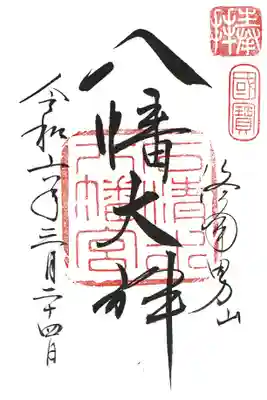 奉拝
國寶
洛南男山
八幡大神
石清水
八幡宮
令和六年三月二十四日